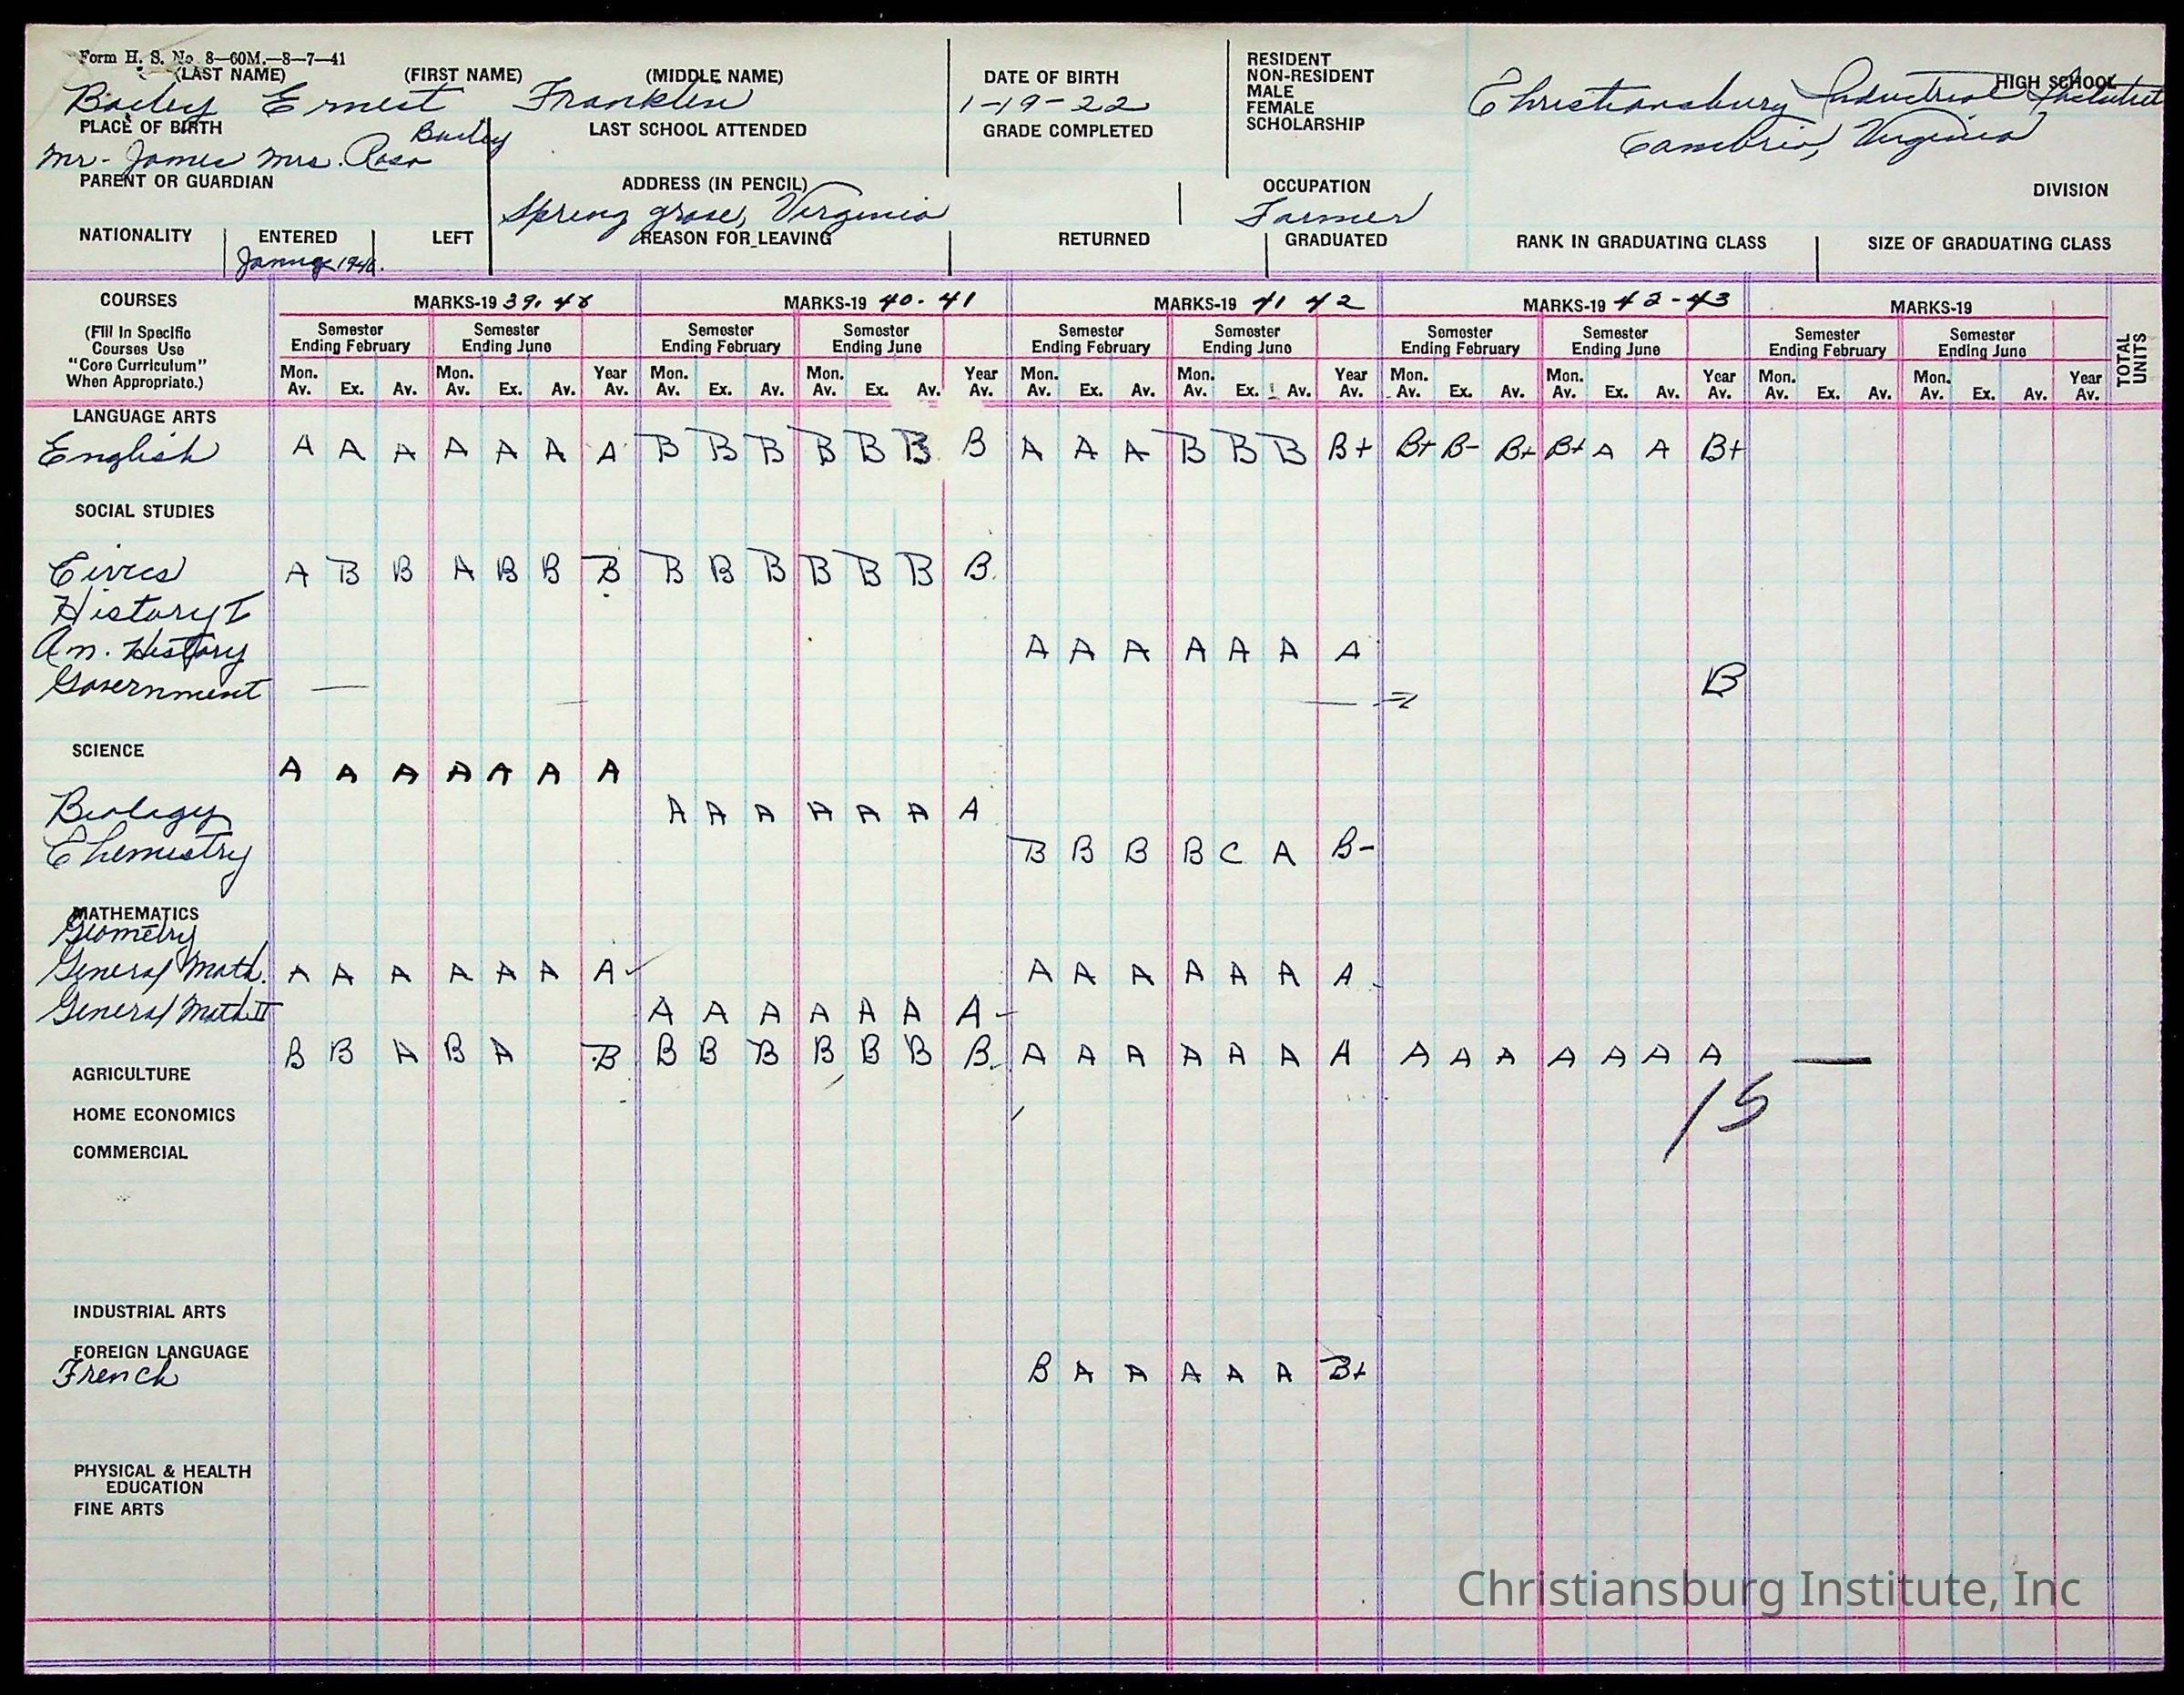 Form H. S. No. 8—60M.—8—7—41
(LAST NAME) (FIRST NAME) (MIDDLE NAME) DATE OF BIRTH
Bailey Ernest Franklin 1-19-22
RESIDENT
NON-RESIDENT
MALE
FEMALE
SCHOLARSHIP
HIGH SCHOOL
Christiansburg Industrial Institute
Cambria, Virginia
PLACE OF BIRTH LAST SCHOOL ATTENDED GRADE COMPLETED
Bailey
Mr. James Mrs. Rosa
PARENT OR GUARDIAN ADDRESS (IN PENCIL) OCCUPATION DIVISION
Spring grove, Virginia Farmer
NATIONALITY ENTERED LEFT REASON FOR LEAVING RETURNED GRADUATED RANK IN GRADUATING CLASS SIZE OF GRADUATING CLASS
COURSES MARKS-19 39. 40 MARKS-19 40-41 MARKS-19 41 42 MARKS-19 42-43 MARKS-19
(Fill In Specific
Courses Use
"Core Curriculum"
When Appropriate.)
Semester Ending February Semester Ending June Semester Ending February Semester Ending June Semester Ending February Semester Ending June Semester Ending February Semester Ending June Semester Ending February Semester Ending June TOTAL UNITS
Mon. Av. Ex. Av. Mon. Av. Ex. Av. Year Av. Mon. Av. Ex. Av. Mon. Av. Ex. Av. Year Av. Mon. Av. Ex. Av. Mon. Av. Ex. Av. Year Av. Mon. Av. Ex. Av. Mon. Av. Ex. Av. Year Av. Mon. Av. Ex. Av. Mon. Av. Ex. Av. Year Av.
LANGUAGE ARTS
English A A A A A A A B B B B B B B A A A B B B B+ B+ B- B+ B+ A A B+
SOCIAL STUDIES
Civics A B B A B B B B B B B B B B
History I
Am. History A A A A A A A
Government — B
SCIENCE
A A A A A A A
Biology A A A A A A A
Chemistry B B B B C A B-
MATHEMATICS
Geometry
General Math. A A A A A A A ✓ A A A A A A A
General Math II A A A A A A A-
B B A B A B B B B B B B B A A A A A A A A A A A A A A —
AGRICULTURE
15
HOME ECONOMICS
COMMERCIAL
INDUSTRIAL ARTS
FOREIGN LANGUAGE
French B A A A A A B+
PHYSICAL & HEALTH
EDUCATION
FINE ARTS
Christiansburg Institute, Inc